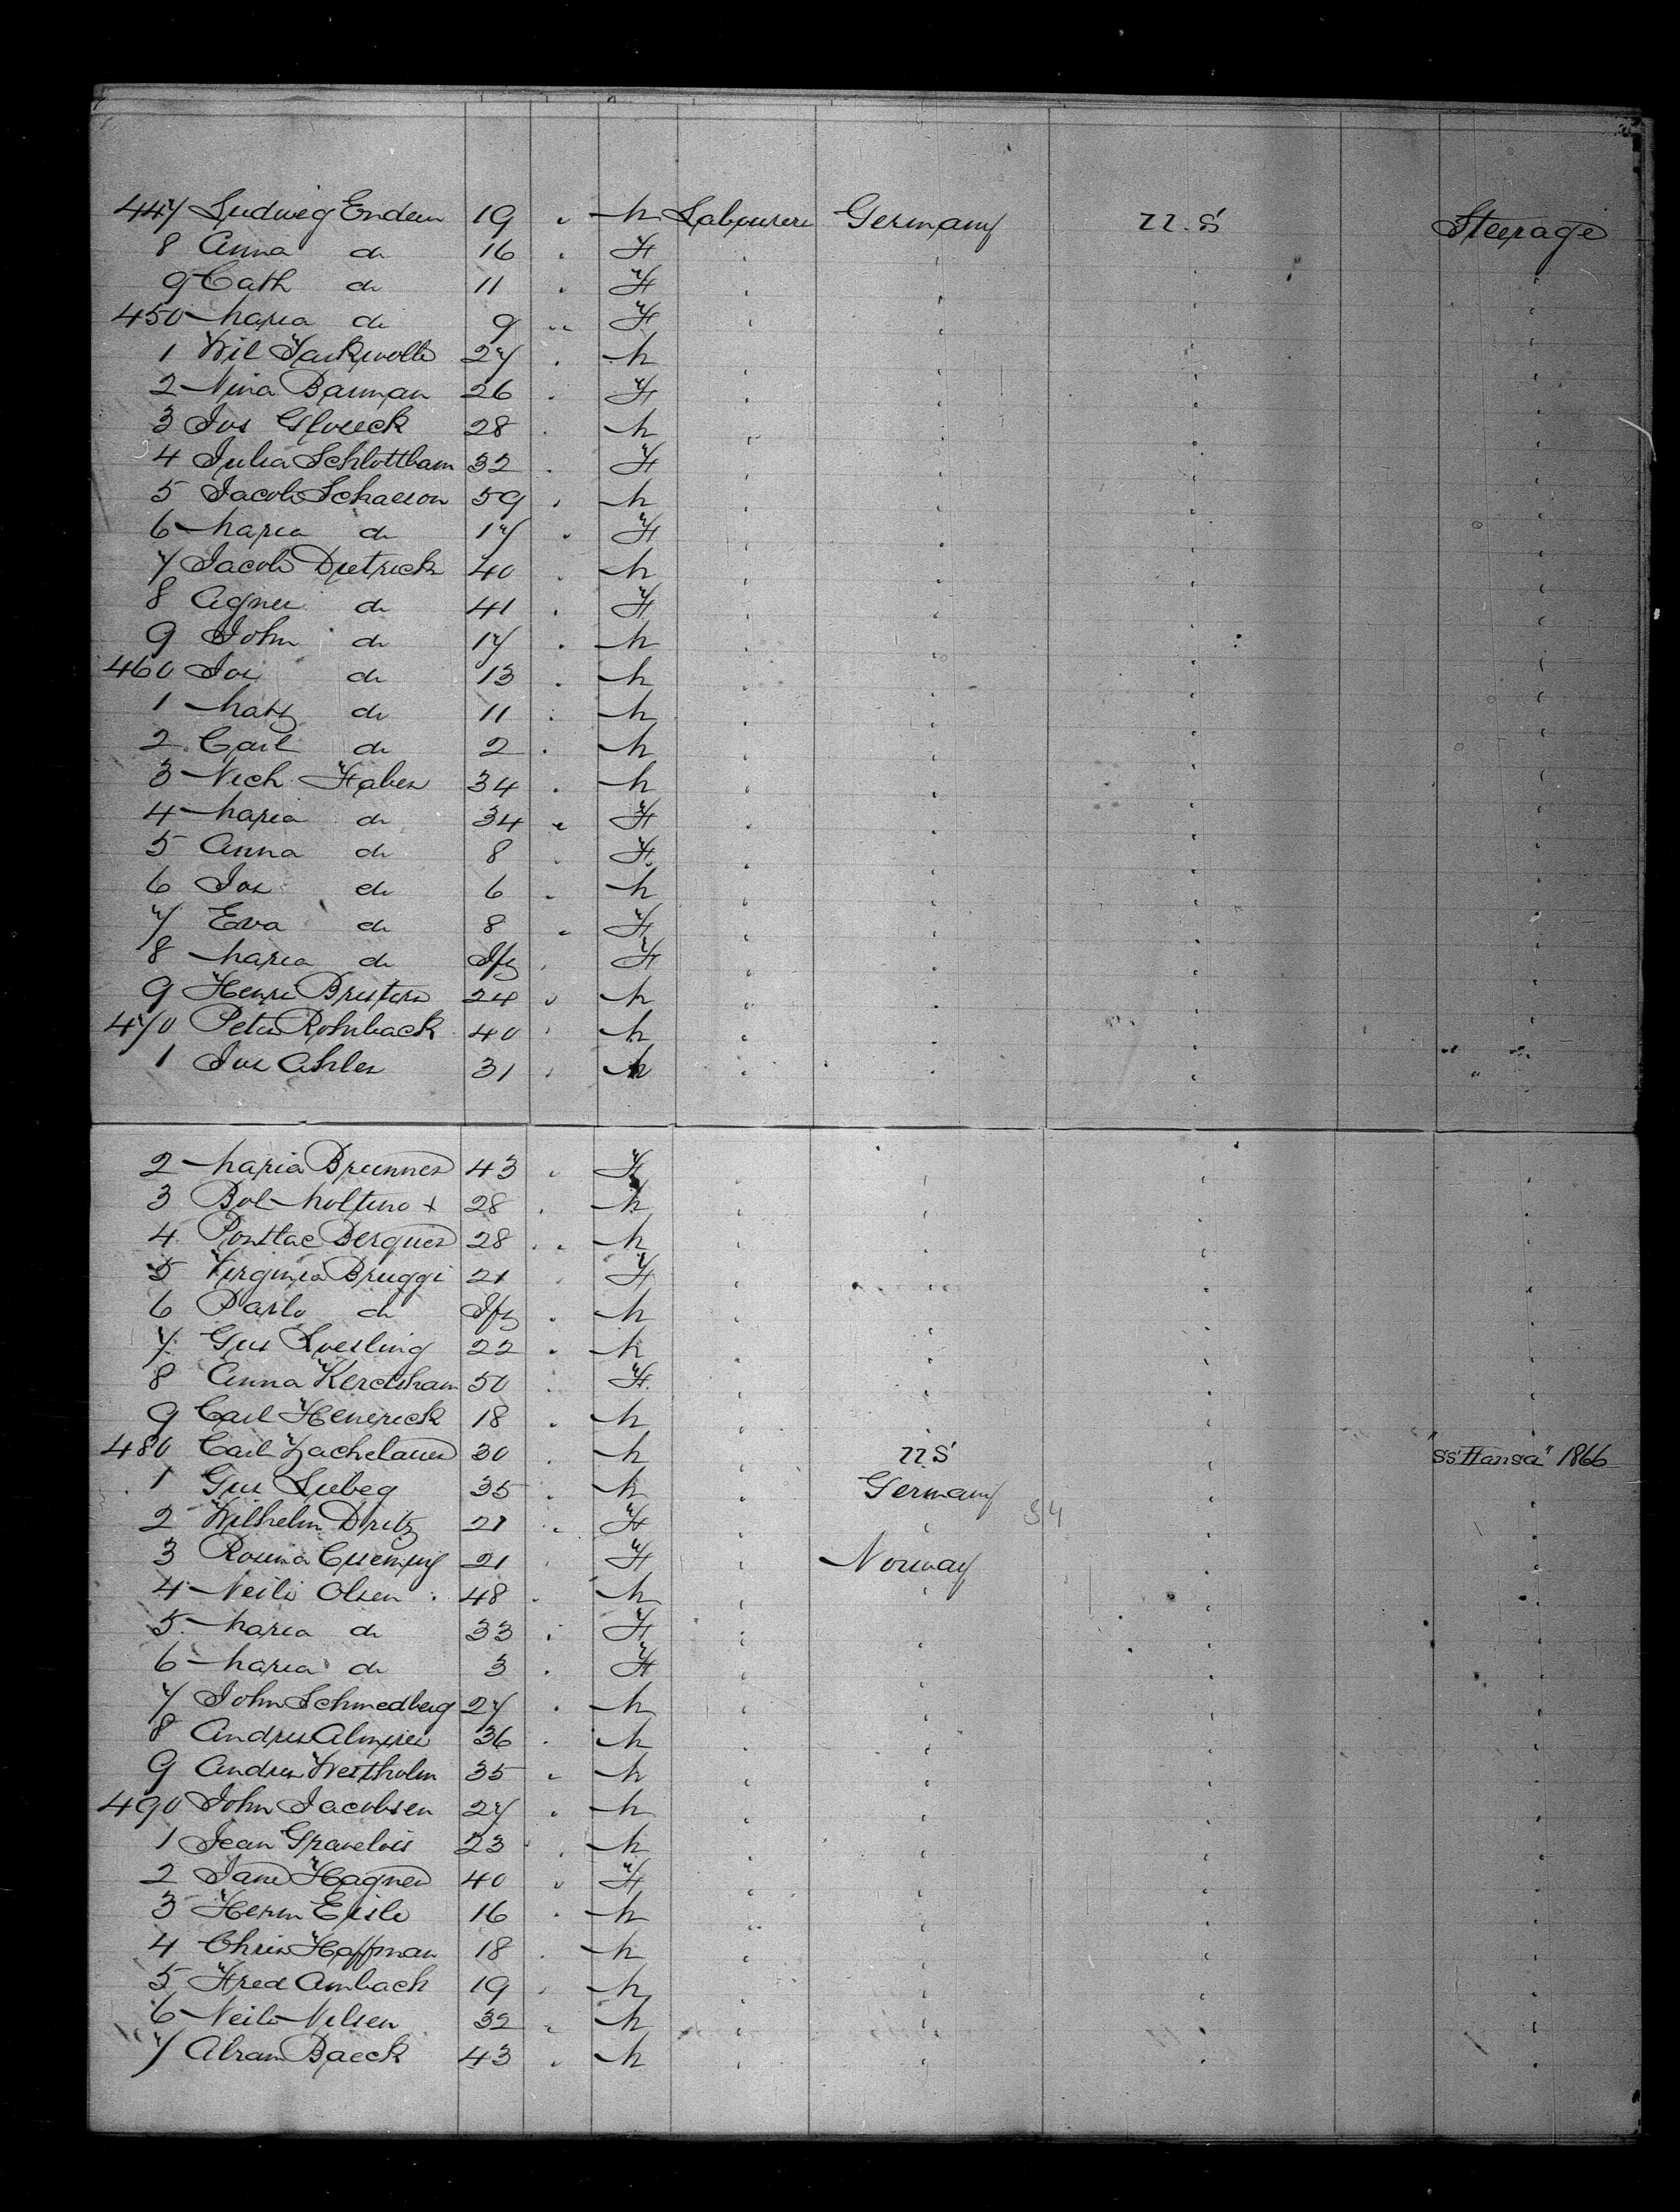 447 Ludwig Endem 19 " M Labourers Germany U.S Steerage
8 Anna do 16 " F " " " "
9 Cath do 11 " F " " " "
450 Maria do 9 " F " " " "
1 Wil 27 " M " " " "
2 Nina Bauman 26 " F " " " "
3 Jos Glueck 28 " M " " " "
4 Julia Schlottham 32 " F " " " "
5 Jacob Schaeson 59 " M " " " "
6 Maria do 17 " F " " " "
7 Jacob Dietrich 40 " M " " " "
8 Agnes do 41 " F " " " "
9 John do 17 " M " " " "
460 Jos do 13 " M " " " "
1 Matz do 11 " M " " " "
2 Carl do 2 " M " " " "
3 Nich Faber 34 " M " " " "
4 Maria do 34 " F " " " "
5 Anna do 8 " F " " " "
6 Jos do 6 " M " " " "
7 Eva do 8 " F " " " "
8 Maria do Inf " F " " " "
9 Henri 24 " M " " " "
470 Peter Rohrback 40 " M " " " "
1 Jos Ahler 31 " M " " " "
2 Maria Brunner 43 " F " " " "
3 Bol Moltino + 28 " M " " " "
4 28 " M " " " "
5 Virginia Bruggi 21 " F " " " "
6 Parlo do Inf " M " " " "
7 Gus Loesling 22 " M " " " "
8 Anna 50 " F " " " "
9 Carl Henerick 18 " M " " " "
480 Carl Zachelauer 30 " M " U S " "SS Hansa" 1866
1 Gus Lubeg 35 " M " Germany " "
2 Wilhelm Dritz 21 " F " " 34 " "
3 Rosina 21 " F " Norway " "
4 Neils Olsen 48 " M " " " "
5 Maria do 33 " F " " " "
6 Maria do 3 " F " " " "
7 John Schmedberg 27 " M " " " "
8 Andres 36 " M " " " "
9 Andres Westholm 35 " M " " " "
490 John Jacobsen 27 " M " " " "
1 Jean Gravelois 23 " M " " " "
2 Jane Hagner 40 " F " " " "
3 Herm Eisle 16 " M " " " "
4 Chris Hoffman 18 " M " " " "
5 Fred Ambach 19 " M " " " "
6 Neils Nilsen 32 " M " " " "
7 Abram Baeck 43 " M " " " "